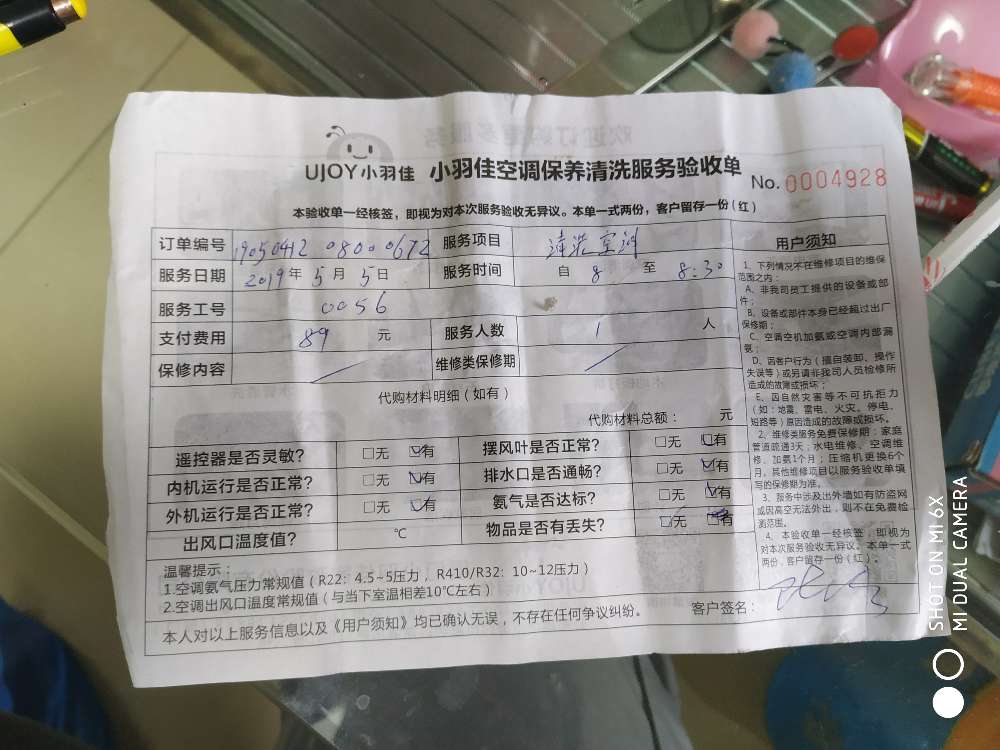 UJOY小羽佳 小羽佳空调保养清洗服务验收单 No.0004928
本验收单一经核签，即视为对本次服务验收无异议。本单一式两份，客户留存一份（红）
订单编号 19050412 08000672 服务项目
服务日期 2019年5月5日 服务时间 自 8 至 8:30
服务工号 0056
支付费用 89 元 服务人数 1 人
保修内容 / 维修类保修期 /
代购材料明细（如有）
代购材料总额： 元
遥控器是否灵敏？ □无 ☑有 摆风叶是否正常？ □无 ☑有
内机运行是否正常？ □无 ☑有 排水口是否通畅？ □无 ☑有
外机运行是否正常？ □无 ☑有 氨气是否达标？ □无 ☑有
出风口温度值？ ℃ 物品是否有丢失？ ☑无 □有
温馨提示：
1.空调氨气压力常规值（R22：4.5~5压力，R410/R32：10~12压力）
2.空调出风口温度常规值（与当下室温相差10℃左右）
客户签名：
本人对以上服务信息以及《用户须知》均已确认无误，不存在任何争议纠纷。
用户须知
1、下列情况不在维修项目的维保
范围之内：
A、非我司员工提供的设备或部
件；
B、设备或部件本身已经超过出厂
保修期；
C、空调空机加氨或空调内部漏
氨；
D、因客户行为（擅自装卸、操作
失误等）或另请非我司人员检修所
造成的故障或损坏；
E、因自然灾害等不可抗拒力
（如：地震、雷电、火灾、停电、
短路等）原因造成的故障或损坏。
2、维修类服务免费保修期：家庭
管道疏通3天；水电维修、空调维
修、加氨1个月；压缩机更换6个
月。其他维修项目以服务验收单填
写的保修期为准。
3、服务中涉及出外墙如有防盗网
或因高空无法外出，则不在免费检
测范围。
4、本验收单一经核签，即视为
对本次服务验收无异议。本单一式
两份，客户留存一份（红）。
SHOT ON MI 6X
MI DUAL CAMERA